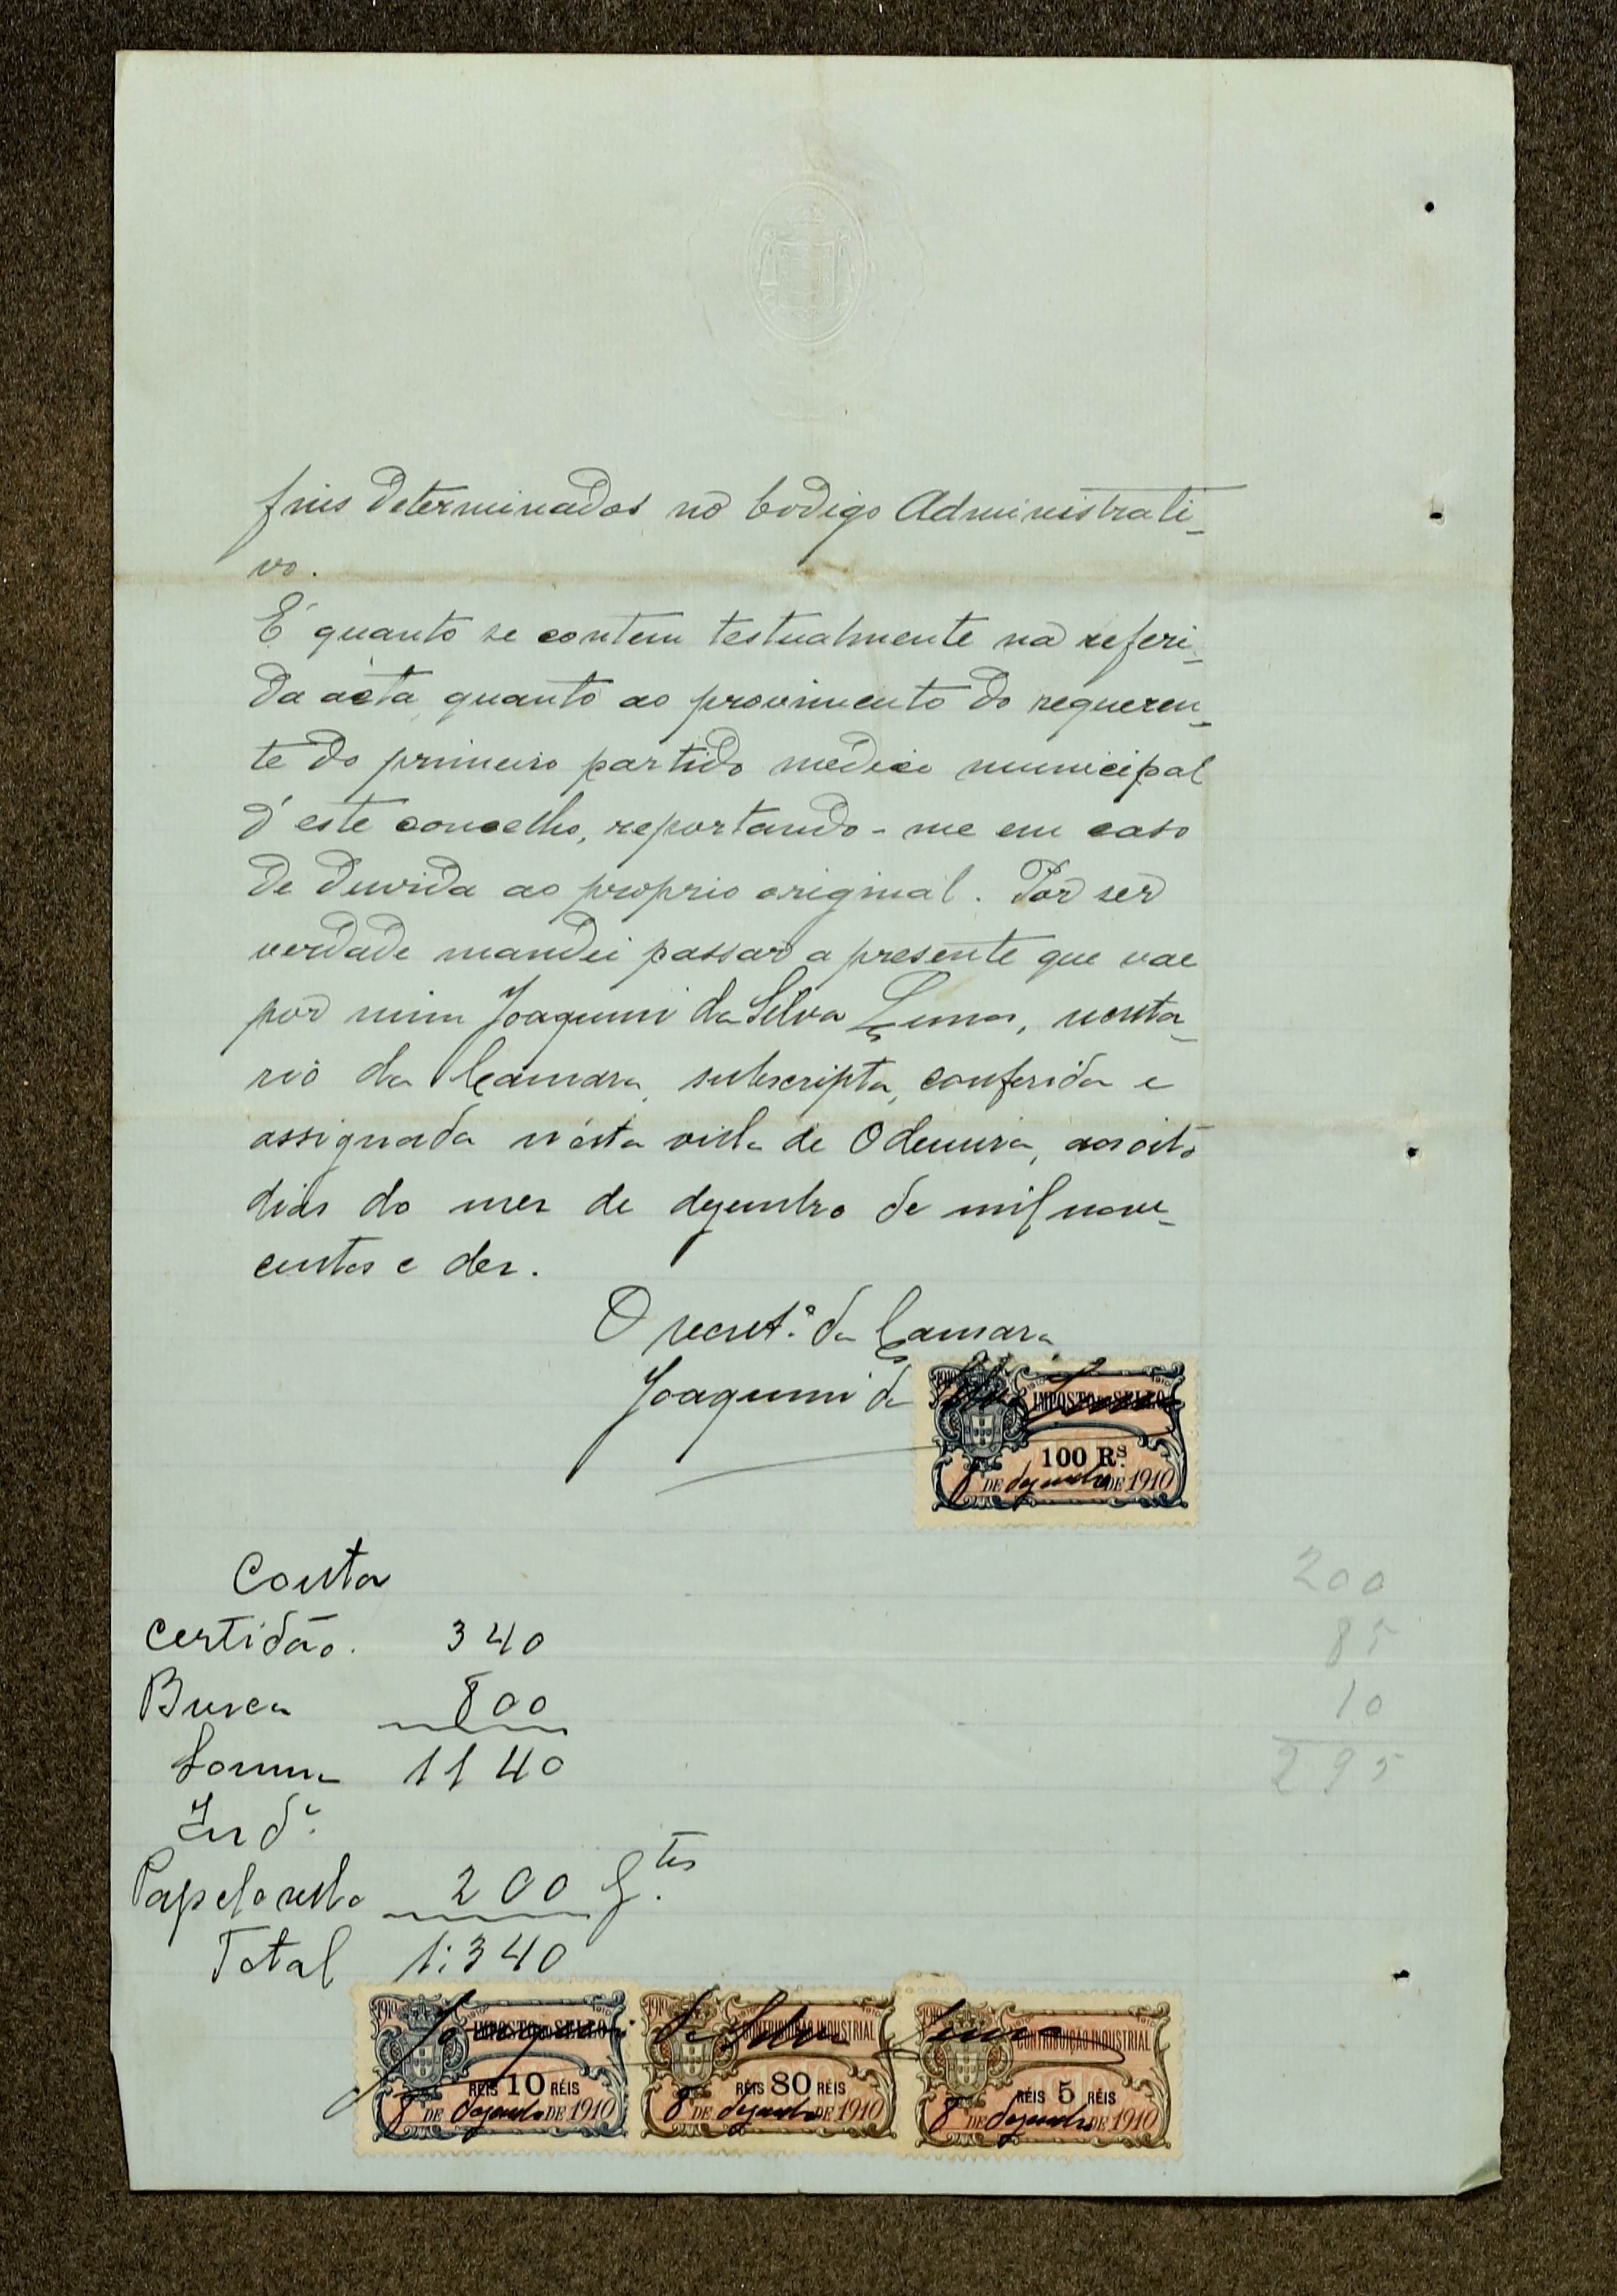 fins determinados no Codigo Administrati-
vo.
É quanto se contem testualmente na referi-
da acta, quanto ao provimento do requeren-
te do primeiro partido medico municipal
d'este concelho, reportando-me em caso
de duvida ao proprio original. Por ser
verdade mandei passar a presente que vae
por mim Joaquim da Silva Lemos, secreta-
rio da Camara, subscripta, conferida e
assignada n'esta villa de Odemira, aos oito
dias do mez de dezembro de mil nove-
centos e dez.
O secret.º da Camara
Joaquim da Silva
IMPOSTO DO SELLO
100 Rs.
8 DE dezembro DE 1910
Conta
Certidão. 340
Busca 800
Somma 1140
Papel e sello 200
Total 1:340
200
85
10
295
Joaquim da Silva Lemos
1910 IMPOSTO DO SELLO
RÉIS 10 RÉIS
8 DE dezembro DE 1910
1910 CONTRIBUIÇÃO INDUSTRIAL
RÉIS 80 RÉIS
8 DE dezembro DE 1910
1910 CONTRIBUIÇÃO INDUSTRIAL
RÉIS 5 RÉIS
8 DE dezembro DE 1910